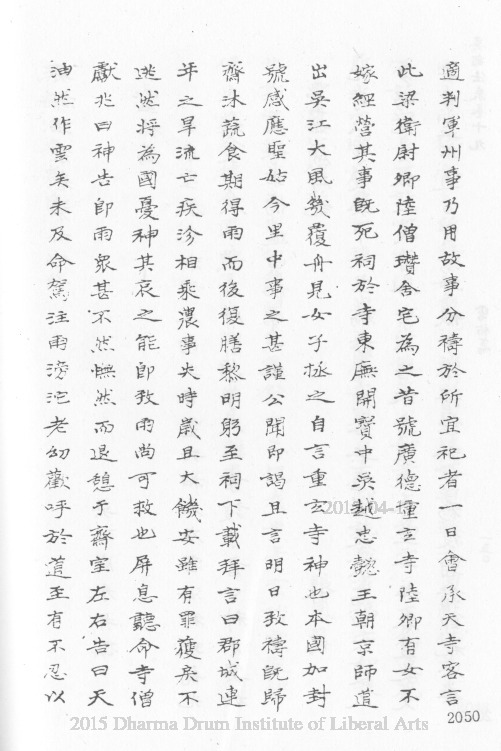 適判軍州事乃用故事分禱於所宜祀者一日會承天寺客言
此梁衛尉卿陸僧瓚舍宅為之昔號廣德重玄寺陸卿有女不
嫁經營其事既死祠於寺東廡開寶中吳越忠懿王朝京師道
出吳江大風幾覆舟見女子拯之自言重玄寺神也本國加封
號感應聖姑今里中事之甚謹公聞即謁且言明日致禱既歸
齋沐蔬食期得雨而後復膳黎明躬至祠下載拜言曰郡城連
年之旱流亡疾沴相乘農事失時歲且大饑安雖有罪獲戾不
逃然將為國憂神其哀之能即致雨尚可救也屏息聽命寺僧
獻兆曰神告即雨眾甚不然憮然而退憩于齋室左右告曰天
油然作雲矣未及命駕注雨滂沱老幼歡呼於道至有不忍以
2050
2015 Dharma Drum Institute of Liberal Arts